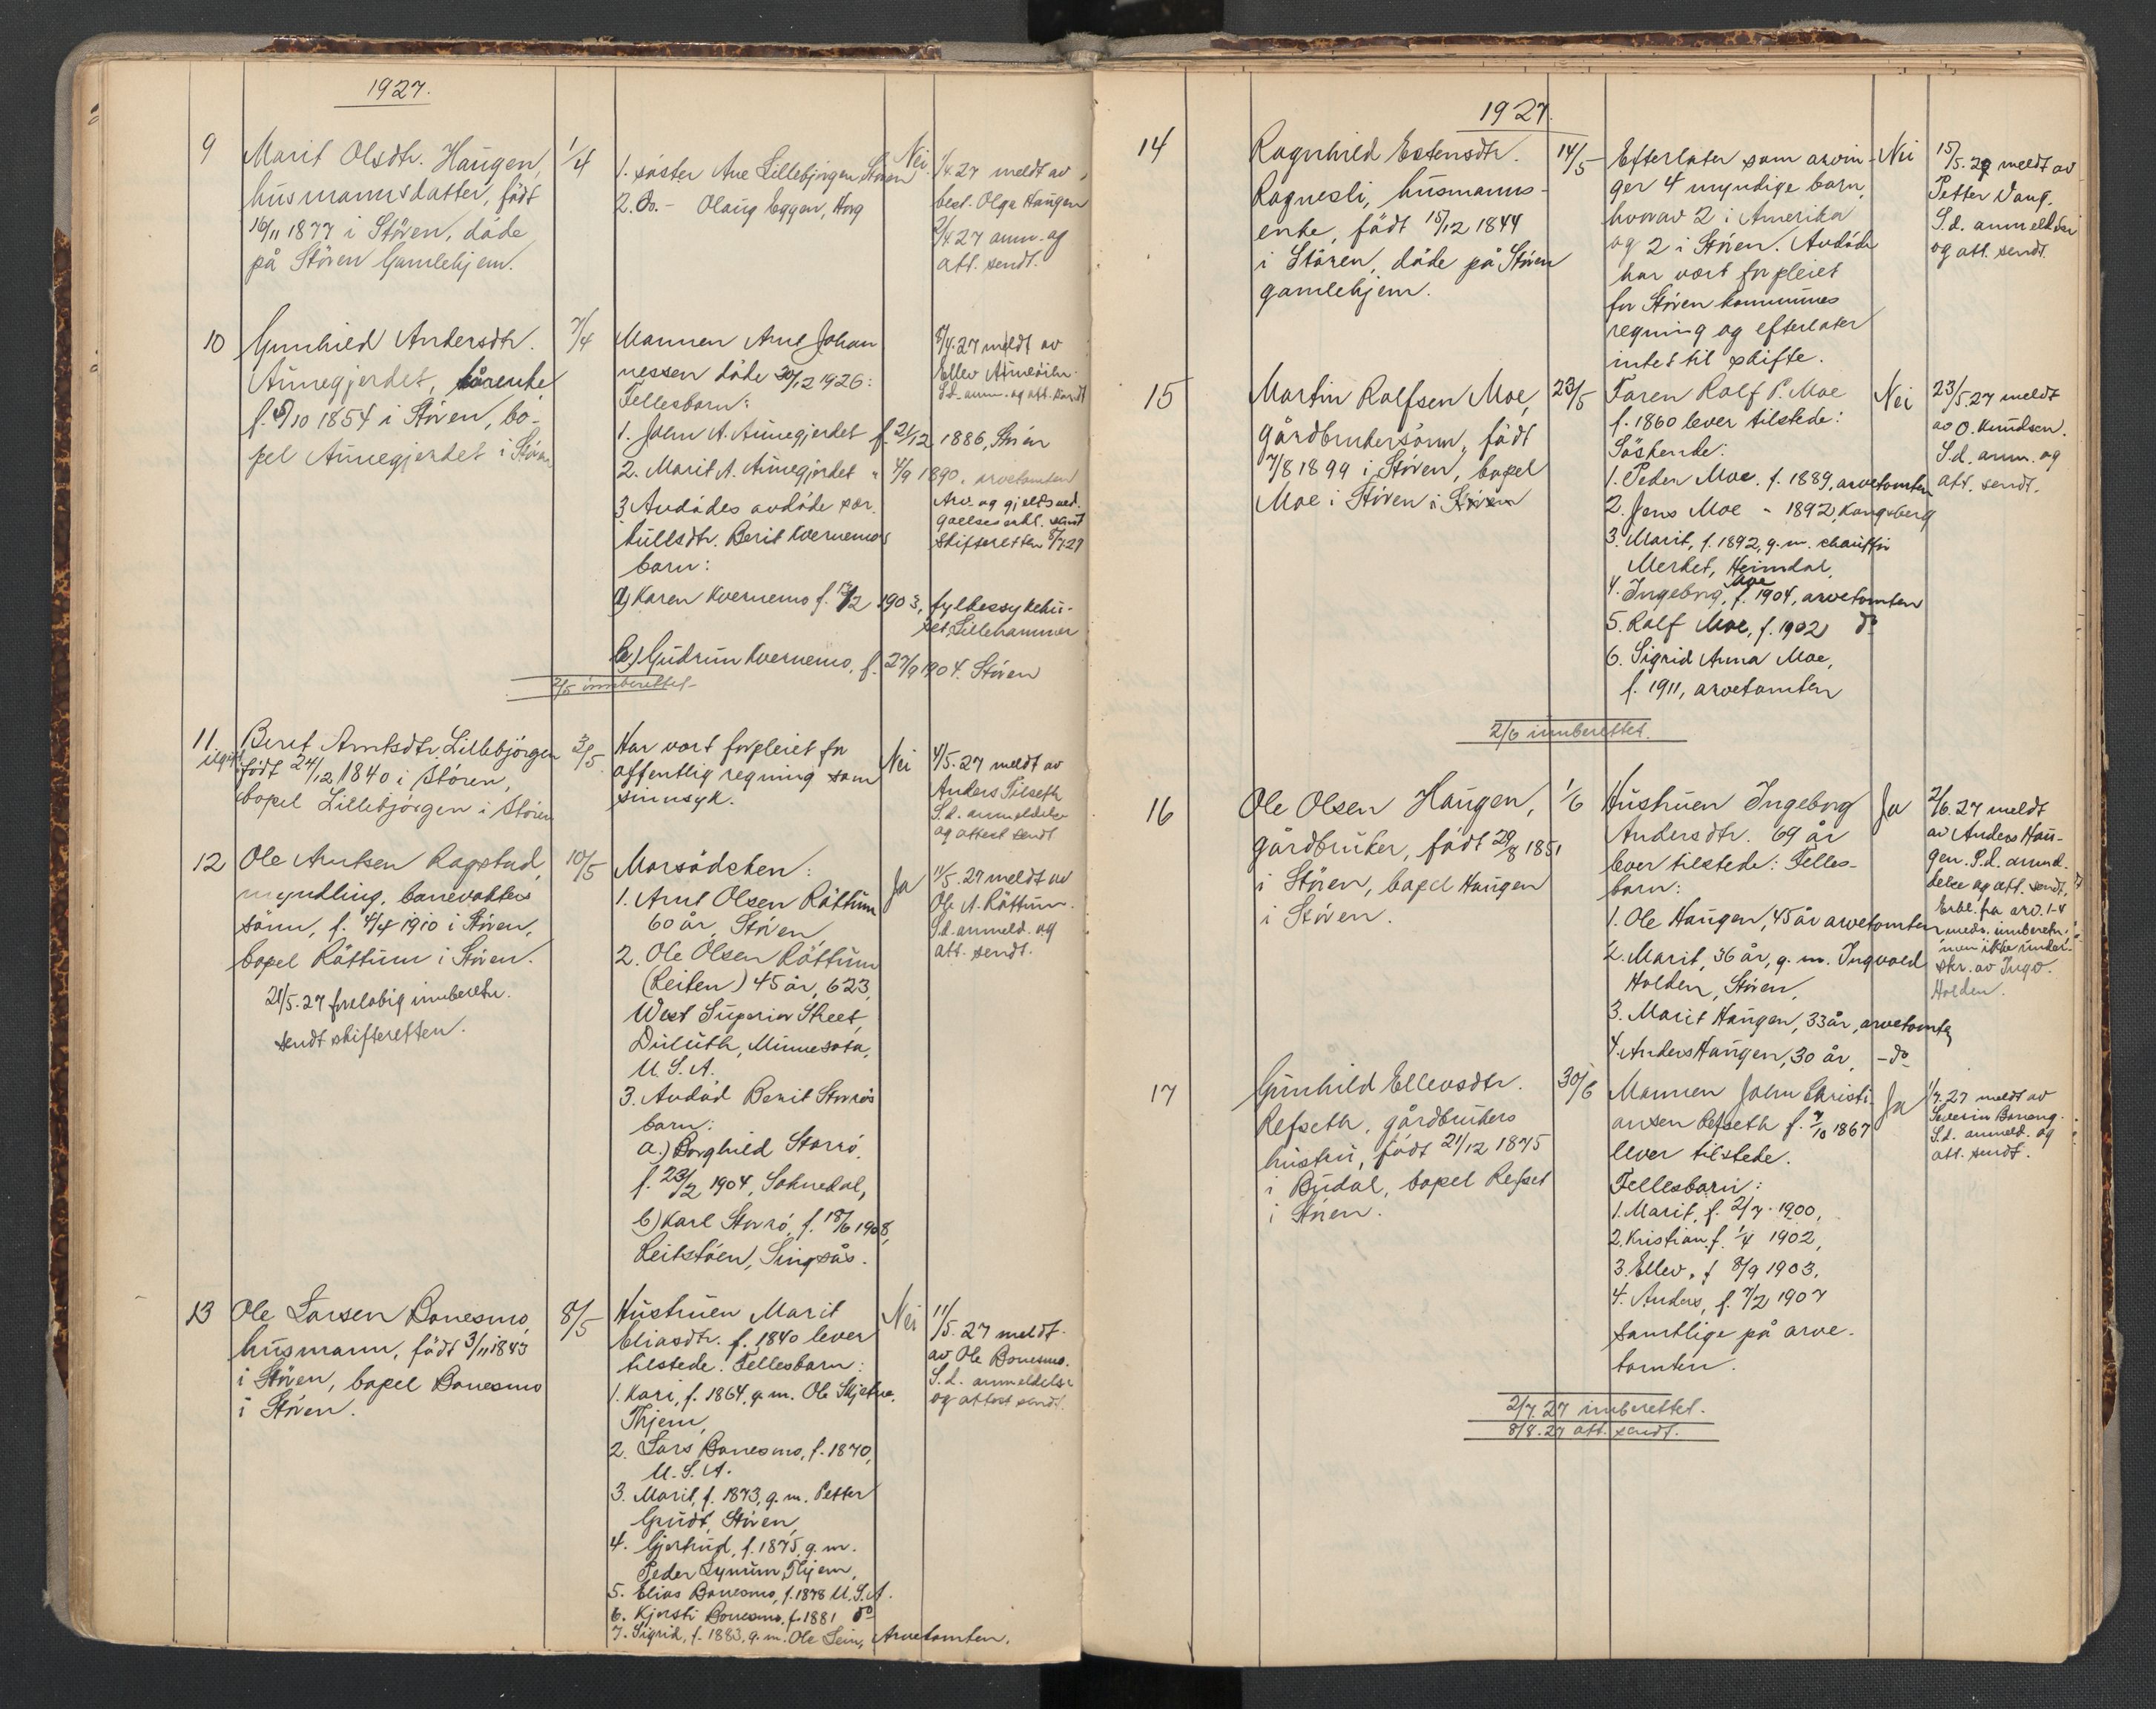 1927.
9
Marit Olsdtr. Haugen,
husmannsdatter, født
16/11 1877 i Støren, døde
på Støren Gamlehjem.
1/4
1. søster Ane Lillebjørgen Støren
2. Do. - Olaug Eggen, Horg
Nei
1/4.27 meldt av
best. Olga Haugen
2/4 27 anm. og
att. sendt.
10
Gunhild Andersdtr.
Aunegjerdet, kårenke
f. 6/10 1854 i Støren, bo-
pel Aunegjerdet i Støren
7/4
Mannen Arnt Johan
nessen døde 30/12 1926:
Fellesbarn:
1. John A. Aunegjerdet f. 21/12 1886, Støren
2. Marit A. Aunegjerdet " 4/9 1890, arvetomten
3 Avdødes avdøde sær-
kullsdtr. Berit Kvernemos
barn:
a) Karen Kvernemo f. 17/2 1903, fylkessykehu-
set, Lillehammer
b) Gudrun Kvernemo, f. 27/9 1904. Støren
8/4.27 meldt av
Ellev Auneøien
S.d. anm. og att. sendt
Arv. og gjelds ved-
gaelseserkl. sent
skifteretten 8/7.27
2/5 innberettet
11
ugift
Beret Arntsdtr. Lillebjørgen
født 24/12 1840 i Støren,
bopel Lillebjørgen i Støren
3/5
Har vært forpleiet for
offentlig regning som
sinnsyk.
Nei
4/5.27 meldt av
Anders Tilseth
S.d. anmeldelse
og attest sendt
12
Ole Arntsen Rogstad,
myndling, banevokters
sønn, f. 4/4 1910 i Støren,
bopel Røttum i Støren.
21/5.27 foreløbig innberetn.
sendt skifteretten.
10/5
Morsødsken:
1. Arnt Olsen Røttum
60 år, Støren
2. Ole Olsen Røttum
(Reiten) 45 år, 623,
West Superior Street,
Duluth, Minnesota,
U. S. A.
3. Avdød Berit Storrøs
barn:
a.) Borghild Storrø,
f. 23/2 1904, Soknedal,
b) Karl Storrø, f. 18/6 1908,
Reitstøen, Singsås.
Ja
11/5.27 meldt av
Ole A. Røttum.
S.d. anmeld. og
att. sendt.
13
Ole Larsen Bonesmo,
husmann, født 3/11 1843
i Støren, bopel Bonesmo
i Støren.
8/5
Hustruen Marit
Eliasdtr. f. 1840 lever
tilstede. Fellesbarn:
1. Kari, f. 1864, g. m. Ole Skjetne,
Thjem,
2. Lars Bonesmo, f. 1870,
U. S. A.
3. Marit, f. 1873, g. m. Petter
Gundt, Støren,
4. Gjertrud, f. 1875, g. m.
Peder Lynum, Thjem,
5. Elias Bonesmo, f. 1878 U. S. A.
6. Kjersti Bonesmo, f. 1881 do
7. Sigrid, f. 1883, g. m. Ole Lein, Arvetomten.
Nei
11/5.27 meldt
av Ole Bonesmo.
S.d. anmeldelse
og attest sendt.
1927.
14
Ragnhild Estensdtr.
Rognesli, husmanns-
enke, født 15/12 1844
i Støren, døde på Støren
gamlehjem.
14/5
Efterlater som arvin-
ger 4 myndige barn,
hvorav 2 i Amerika
og 2 i Støren. Avdøde
har vært forpleiet
for Støren kommunes
regning og efterlater
intet til skifte.
Nei
15/5.27 meldt av
Petter Vaug.
S.d. anmeldelse
og att. sendt.
15
Martin Rolfsen Moe,
gårdbrukersønn, født
7/8 1899 i Støren, bopel
Moe i Støren i Støren
23/5
Faren Rolf P. Moe
f. 1860 lever tilstede:
Søskende:
1. Peder Moe, f. 1889, arvetomten
2. Jens Moe - 1892, Kongsberg
3. Marit, f. 1892, g. m. chauffør
Merket, Heimdal,
4. Ingeborg Moe, f. 1904, arvetomten
5. Rolf Moe, f. 1902 do
6. Sigrid Anna Moe,
f. 1911, arvetomten
Nei
23/5.27 meldt
av O. Knudsen.
S.d. anm. og
att. sendt.
2/6 innberettet.
16
Ole Olsen Haugen,
gårdbruker, født 29/8 1851
i Støren, bopel Haugen
i Støren.
1/6
Hustruen Ingeborg
Andersdtr. 69 år
lever tilstede: Felles-
barn:
1. Ole Haugen, 45 år arvetomten
2. Marit, 36 år, g. m. Ingvald
Holden, Støren,
3. Marit Haugen, 33 år, arvetomten
4. Anders Haugen, 30 år, - do
Ja
2/6.27 meldt
av Anders Hau-
gen. S.d. anmel-
delse og att. sendt.
Erkl. fra arv. 1-4
medr. innberetn.
men ikke under-
skr. av Ingv.
Holden.
17
Gunhild Ellevsdtr.
Refseth, gårdbrukers
hustru, født 21/12 1875
i Budal, bopel Refset
i Støren.
30/6
Mannen John Christi-
ansen Refseth f. 7/10 1867
lever tilstede.
Fellesbarn:
1. Marit, f. 2/7 1900,
2. Kristian, f. 1/4 1902,
3. Ellev, f 8/9 1903,
4. Anders, f. 7/2 1907
samtlige på arve-
tomten.
Ja
1/7.27 meldt av
Severin Boneng.
S.d. anmeld. og
att. sendt.
2/7.27 innberettet.
8/8.27 att. sendt.